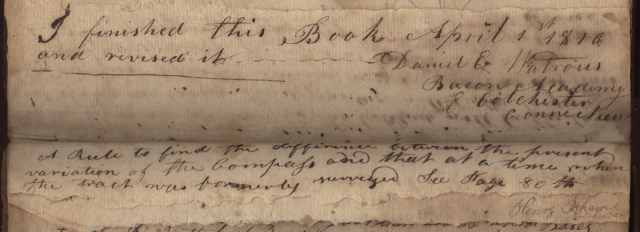 I finished this Book April 1st 1816
and revised it Daniel E Watrous
Bacon Academy
Colchester
Connecticut
A Rule to find the difference between the present
variation of the Compass and that at a time when
the tract was formerly surveyed See Page 80th
Henry